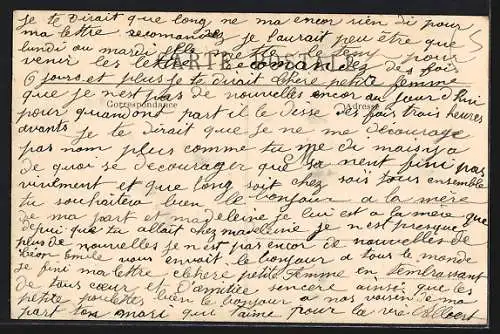 je te dirait que long ne ma encor rien di pour
ma lettre recomandez je laurait peu être que
lundi ou mardi elle le temp pour
CARTE POSTALE
venir les lettre recomandez des foi
6 jours et plus je te dirait chere petite femme
que je n'est pas de nouvelles encor au jour d'hui
Correspondance
Adresse
pour quandont part il le disse des fois trois heures
avants je te dirait que je ne me decourage
pas nom plus comme tu me di mais il y a
de quoi se decourager que sa nent fini pas
vivement et que long soit chez sois tous ensemble
tu souhaitera bien le bonjour a la mere
de ma part et madeleine je lui est a la mere que
depui que tu allait chez madeleine je n'est presque
plus de nouvelles je n'est pas encor de nouvelles de
Leon Emile vous envoit le bonjour a tous le monde
je fini ma lettre chere petite Femme en lembrassant
de tous cœur et D'amitiée sincere ainsi que les
petite poulettes bien le bonjour a nos voisin de ma
part ton mari qui t'aime pour la vie